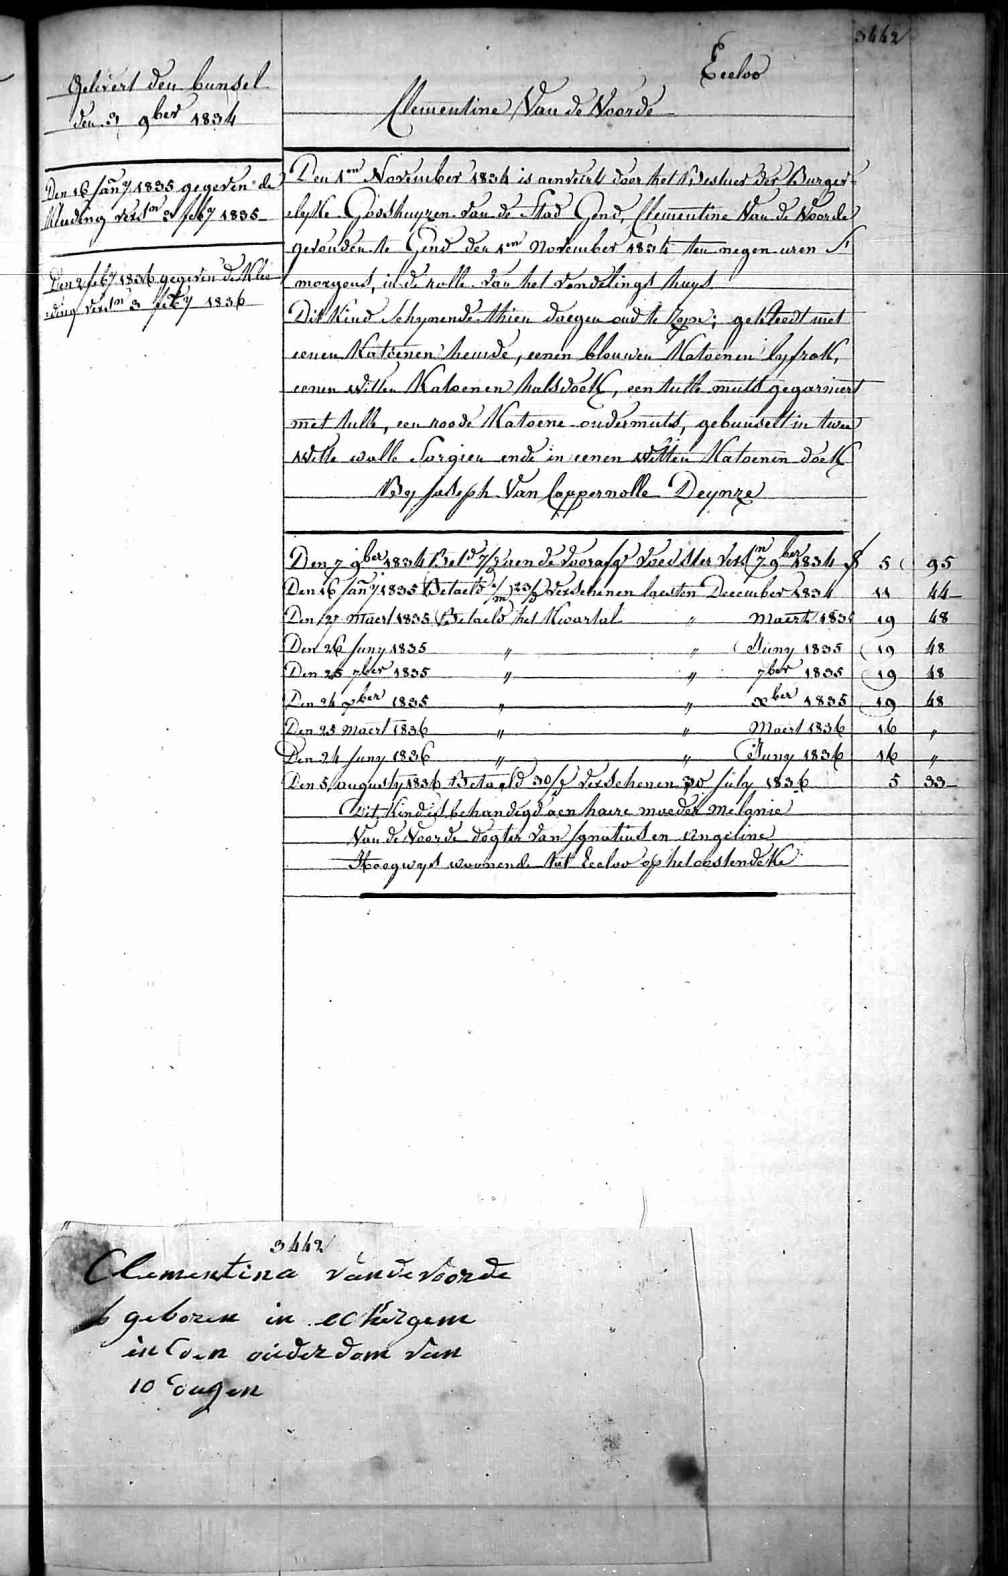 3442
Eecloo
Clementine Van de Voorde
Gelevert den bunsel
den 3 9ber 1834
Den 16 Jany 1835 gegeven de
kleeding versn 3 feby 1835
Den 2 feby 1836 gegeven de Klee
ding versn 3 feby 1836
Den 1en November 1834 is aenveert door het Bestuer der Burger
elyke Godshuyzen van de Stad Gend, Clementine Van de Voorde
gevonden te Gend den 1en November 1834 ten negen uren S'
morgens, in de rolle van het vondelings huys
Dit Kind Schynende thien daegen oud te zyn; gekleedt met
eenen Katoenen hemde, eenen blouwen Katoenen lyfrok,
eenen witten Katoenen halsdoek, een tulle muts gegarniert
met tulle, een roode Katoene ondermuts, gebunselt in twee
witte wolle Sargien ende in eenen witten Katoenen doek
By Joseph Van Coppernolle Deynze
Den 7 9ber 1834 Betd aen de voorafge voedster vers 7 9ber 1834 5 95
Den 16 Jany 1835 Betaeld verschenen laesten December 1834 11 44
Den 27 Maert 1835 Betaeld het Kwartal " Maert 1835 19 48
Den 26 Juny 1835 " " Juny 1835 19 48
Den 25 7ber 1835 " " 7ber 1835 19 48
Den 24 xber 1835 " " xber 1835 19 48
Den 25 Maert 1836 " " Maert 1836 16 "
Den 24 Juny 1836 " " Juny 1836 16 "
Den 5 augusty 1836 Betaeld 30/ verschenen 30 July 1836 5 33
Dit Kind is behandigd aen haere moeder Melanie
Van de Voorde dogter van Ignatius en Angeline
Hoogwys woonende tot Eecloo op het oostendeke
3442
Clementina vandevoorde
geboren in eckergem
in den ouderdom van
10 dagen